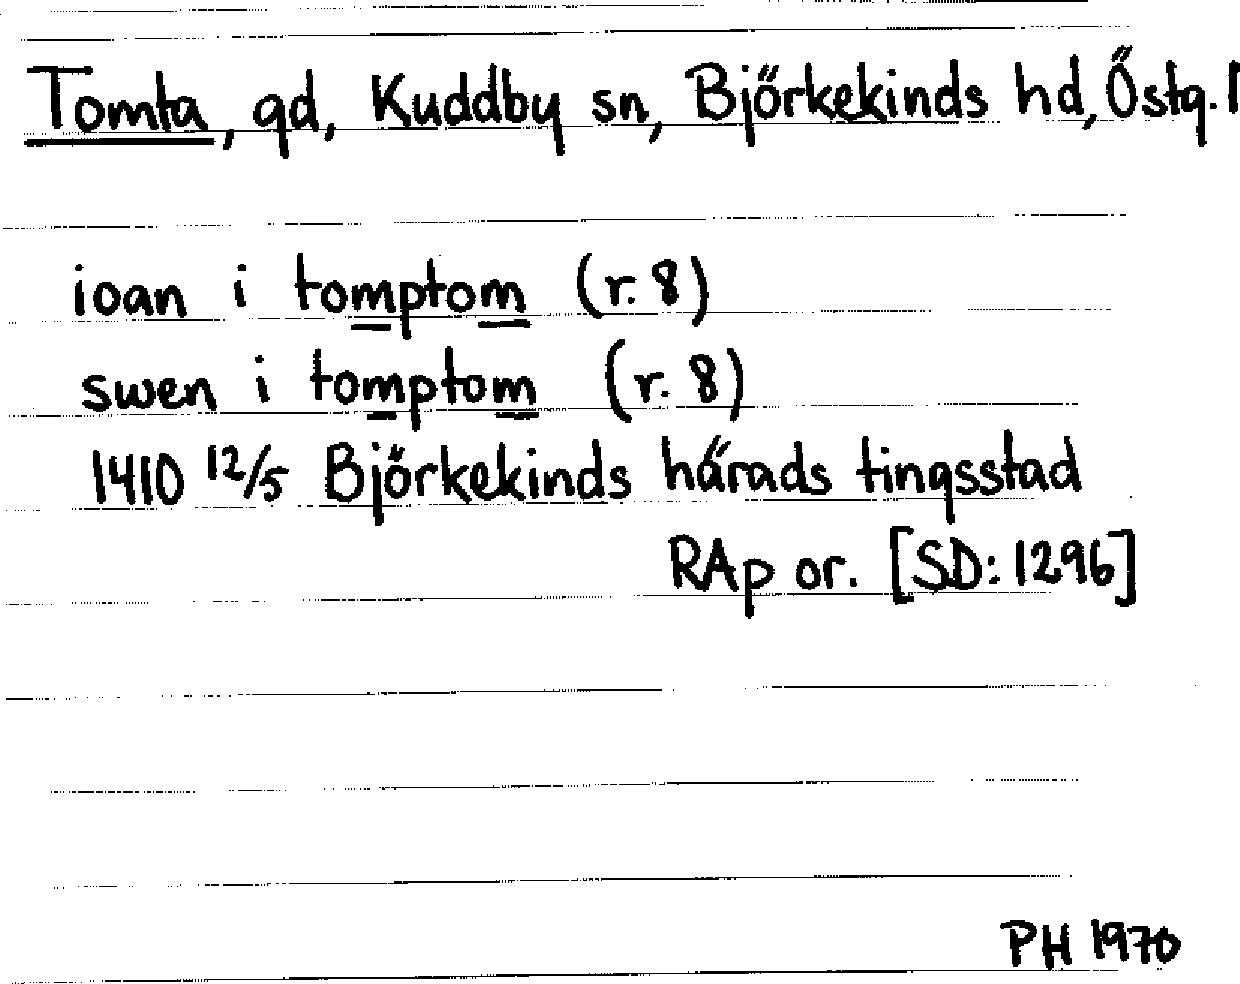 Tomta, gd, Kuddby sn, Björkekinds hd, Östg. l
ioan i tomptom (r. 8)
swen i tomptom (r. 8)
1410 12/5 Björkekinds härads tingsstad
RAp or. [SD: 1296]
PH 1970